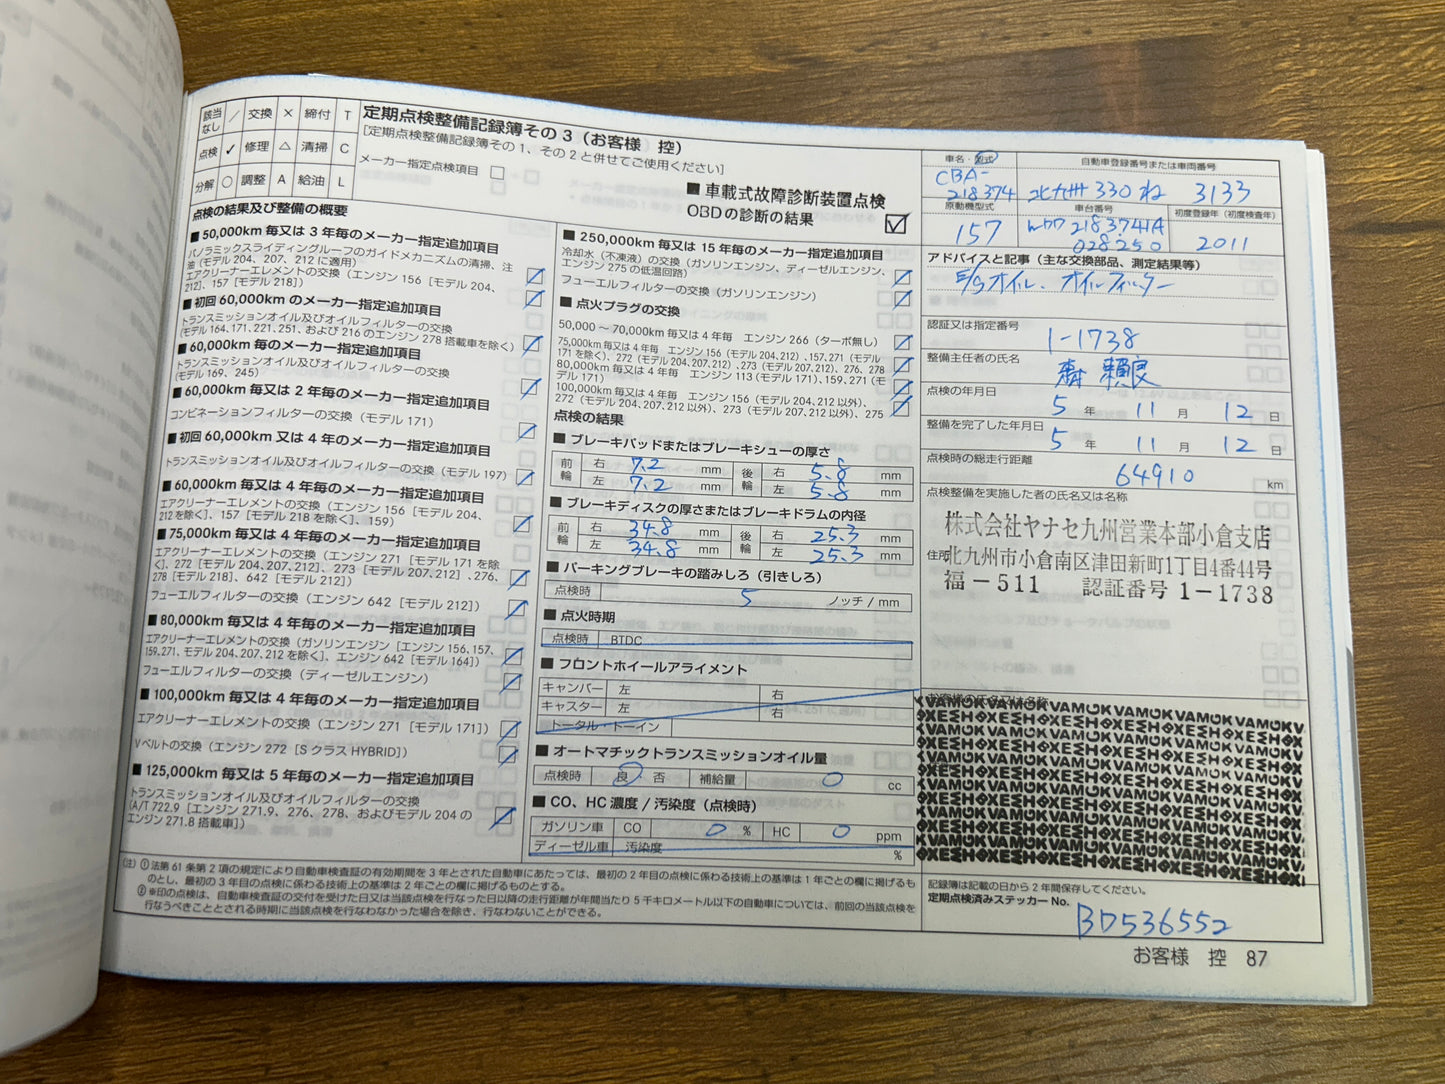 該当なし ／ 交換 × 締付 T
点検 ✓ 修理 △ 清掃 C
分解 ○ 調整 A 給油 L
定期点検整備記録簿その3（お客様　控）
［定期点検整備記録簿その1、その2と併せてご使用ください］
メーカー指定点検項目
■ 車載式故障診断装置点検
OBDの診断の結果
点検の結果及び整備の概要
■ 50,000km 毎又は 3 年毎のメーカー指定追加項目
パノラミックスライディングルーフのガイドメカニズムの清掃、注
油（モデル 204、207、212 に適用）
エアクリーナーエレメントの交換（エンジン 156［モデル 204、
212］、157［モデル 218］）
■ 初回 60,000km のメーカー指定追加項目
トランスミッションオイル及びオイルフィルターの交換
（モデル 164、171、221、251、および 216 のエンジン 278 搭載車を除く）
■ 60,000km 毎のメーカー指定追加項目
トランスミッションオイル及びオイルフィルターの交換
（モデル 169、245）
■ 60,000km 毎又は 2 年毎のメーカー指定追加項目
コンビネーションフィルターの交換（モデル 171）
■ 初回 60,000km 又は 4 年毎のメーカー指定追加項目
トランスミッションオイル及びオイルフィルターの交換（モデル 197）
■ 60,000km 毎又は 4 年毎のメーカー指定追加項目
エアクリーナーエレメントの交換（エンジン 156［モデル 204、
212 を除く］、157［モデル 218 を除く］、159）
■ 75,000km 毎又は 4 年毎のメーカー指定追加項目
エアクリーナーエレメントの交換（エンジン 271［モデル 171 を除
く］、272［モデル 204、207、212］、273［モデル 207、212］、276、
278［モデル 218］、642［モデル 212］）
フューエルフィルターの交換（エンジン 642［モデル 212］）
■ 80,000km 毎又は 4 年毎のメーカー指定追加項目
エアクリーナーエレメントの交換（ガソリンエンジン［エンジン 156、157、
159、271、モデル 204、207、212 を除く］、エンジン 642［モデル 164］）
フューエルフィルターの交換（ディーゼルエンジン）
■ 100,000km 毎又は 4 年毎のメーカー指定追加項目
エアクリーナーエレメントの交換（エンジン 271［モデル 171］）
V ベルトの交換（エンジン 272［S クラス HYBRID］）
■ 125,000km 毎又は 5 年毎のメーカー指定追加項目
トランスミッションオイル及びオイルフィルターの交換
（A/T 722.9［エンジン 271.9、276、278、およびモデル 204 の
エンジン 271.8 搭載車］）
■ 250,000km 毎又は 15 年毎のメーカー指定追加項目
冷却水（不凍液）の交換（ガソリンエンジン、ディーゼルエンジン、
エンジン 275 の低温回路）
フューエルフィルターの交換（ガソリンエンジン）
■ 点火プラグの交換
50,000 ～ 70,000km 毎又は 4 年毎　エンジン 266（ターボ無し）
75,000km 毎又は 4 年毎　エンジン 156（モデル 204、212）、157、271（モデル
171 を除く）、272（モデル 204、207、212）、273（モデル 207、212）、276、278
80,000km 毎又は 4 年毎　エンジン 113（モデル 171）、159、271（モ
デル 171）
100,000km 毎又は 4 年毎　エンジン 156（モデル 204、212 以外）、
272（モデル 204、207、212 以外）、273（モデル 207、212 以外）、275
点検の結果
■ ブレーキパッドまたはブレーキシューの厚さ
前輪 右 7.2 mm 後輪 右 5.8 mm
左 7.2 mm 左 5.8 mm
■ ブレーキディスクの厚さまたはブレーキドラムの内径
前輪 右 34.8 mm 後輪 右 25.3 mm
左 34.8 mm 左 25.3 mm
■ パーキングブレーキの踏みしろ（引きしろ）
点検時 5 ノッチ / mm
■ 点火時期
点検時 BTDC
■ フロントホイールアライメント
キャンバー 左 右
キャスター 左 右
トータル・トーイン
■ オートマチックトランスミッションオイル量
点検時 良・否 補給量 0 cc
■ CO、HC 濃度 / 汚染度（点検時）
ガソリン車 CO 0 % HC 0 ppm
ディーゼル車 汚染度 %
（注）① 法第 61 条第 2 項の規定により自動車検査証の有効期間を 3 年とされた自動車にあたっては、最初の 2 年目の点検に係わる技術上の基準は 1 年ごとの欄に掲げるも
のとし、最初の 3 年目の点検に係わる技術上の基準は 2 年ごとの欄に掲げるものとする。
② ※印の点検は、自動車検査証の交付を受けた日又は当該点検を行なった日以降の走行距離が年間当たり 5 千キロメートル以下の自動車については、前回の当該点検を
行なうべきこととされる時期に当該点検を行なわなかった場合を除き、行なわないことができる。
車名・型式 自動車登録番号または車両番号
CBA-
218374 北九州 330 ね 3133
原動機型式 車台番号 初度登録年（初度検査年）
157 WDD 2183741A
028250 2011
アドバイスと記事（主な交換部品、測定結果等）
E/Gオイル、オイルフィルター
認証又は指定番号
1-1738
整備主任者の氏名
点検の年月日
5 年 11 月 12 日
整備を完了した年月日
5 年 11 月 12 日
点検時の総走行距離
64910 km
点検整備を実施した者の氏名又は名称
株式会社ヤナセ九州営業本部小倉支店
住所 北九州市小倉南区津田新町1丁目4番44号
福－511　認証番号 1－1738
お客様の氏名又は名称
記録簿は記載の日から 2 年間保存してください。
定期点検済みステッカー No.
BD536552
お客様　控　87